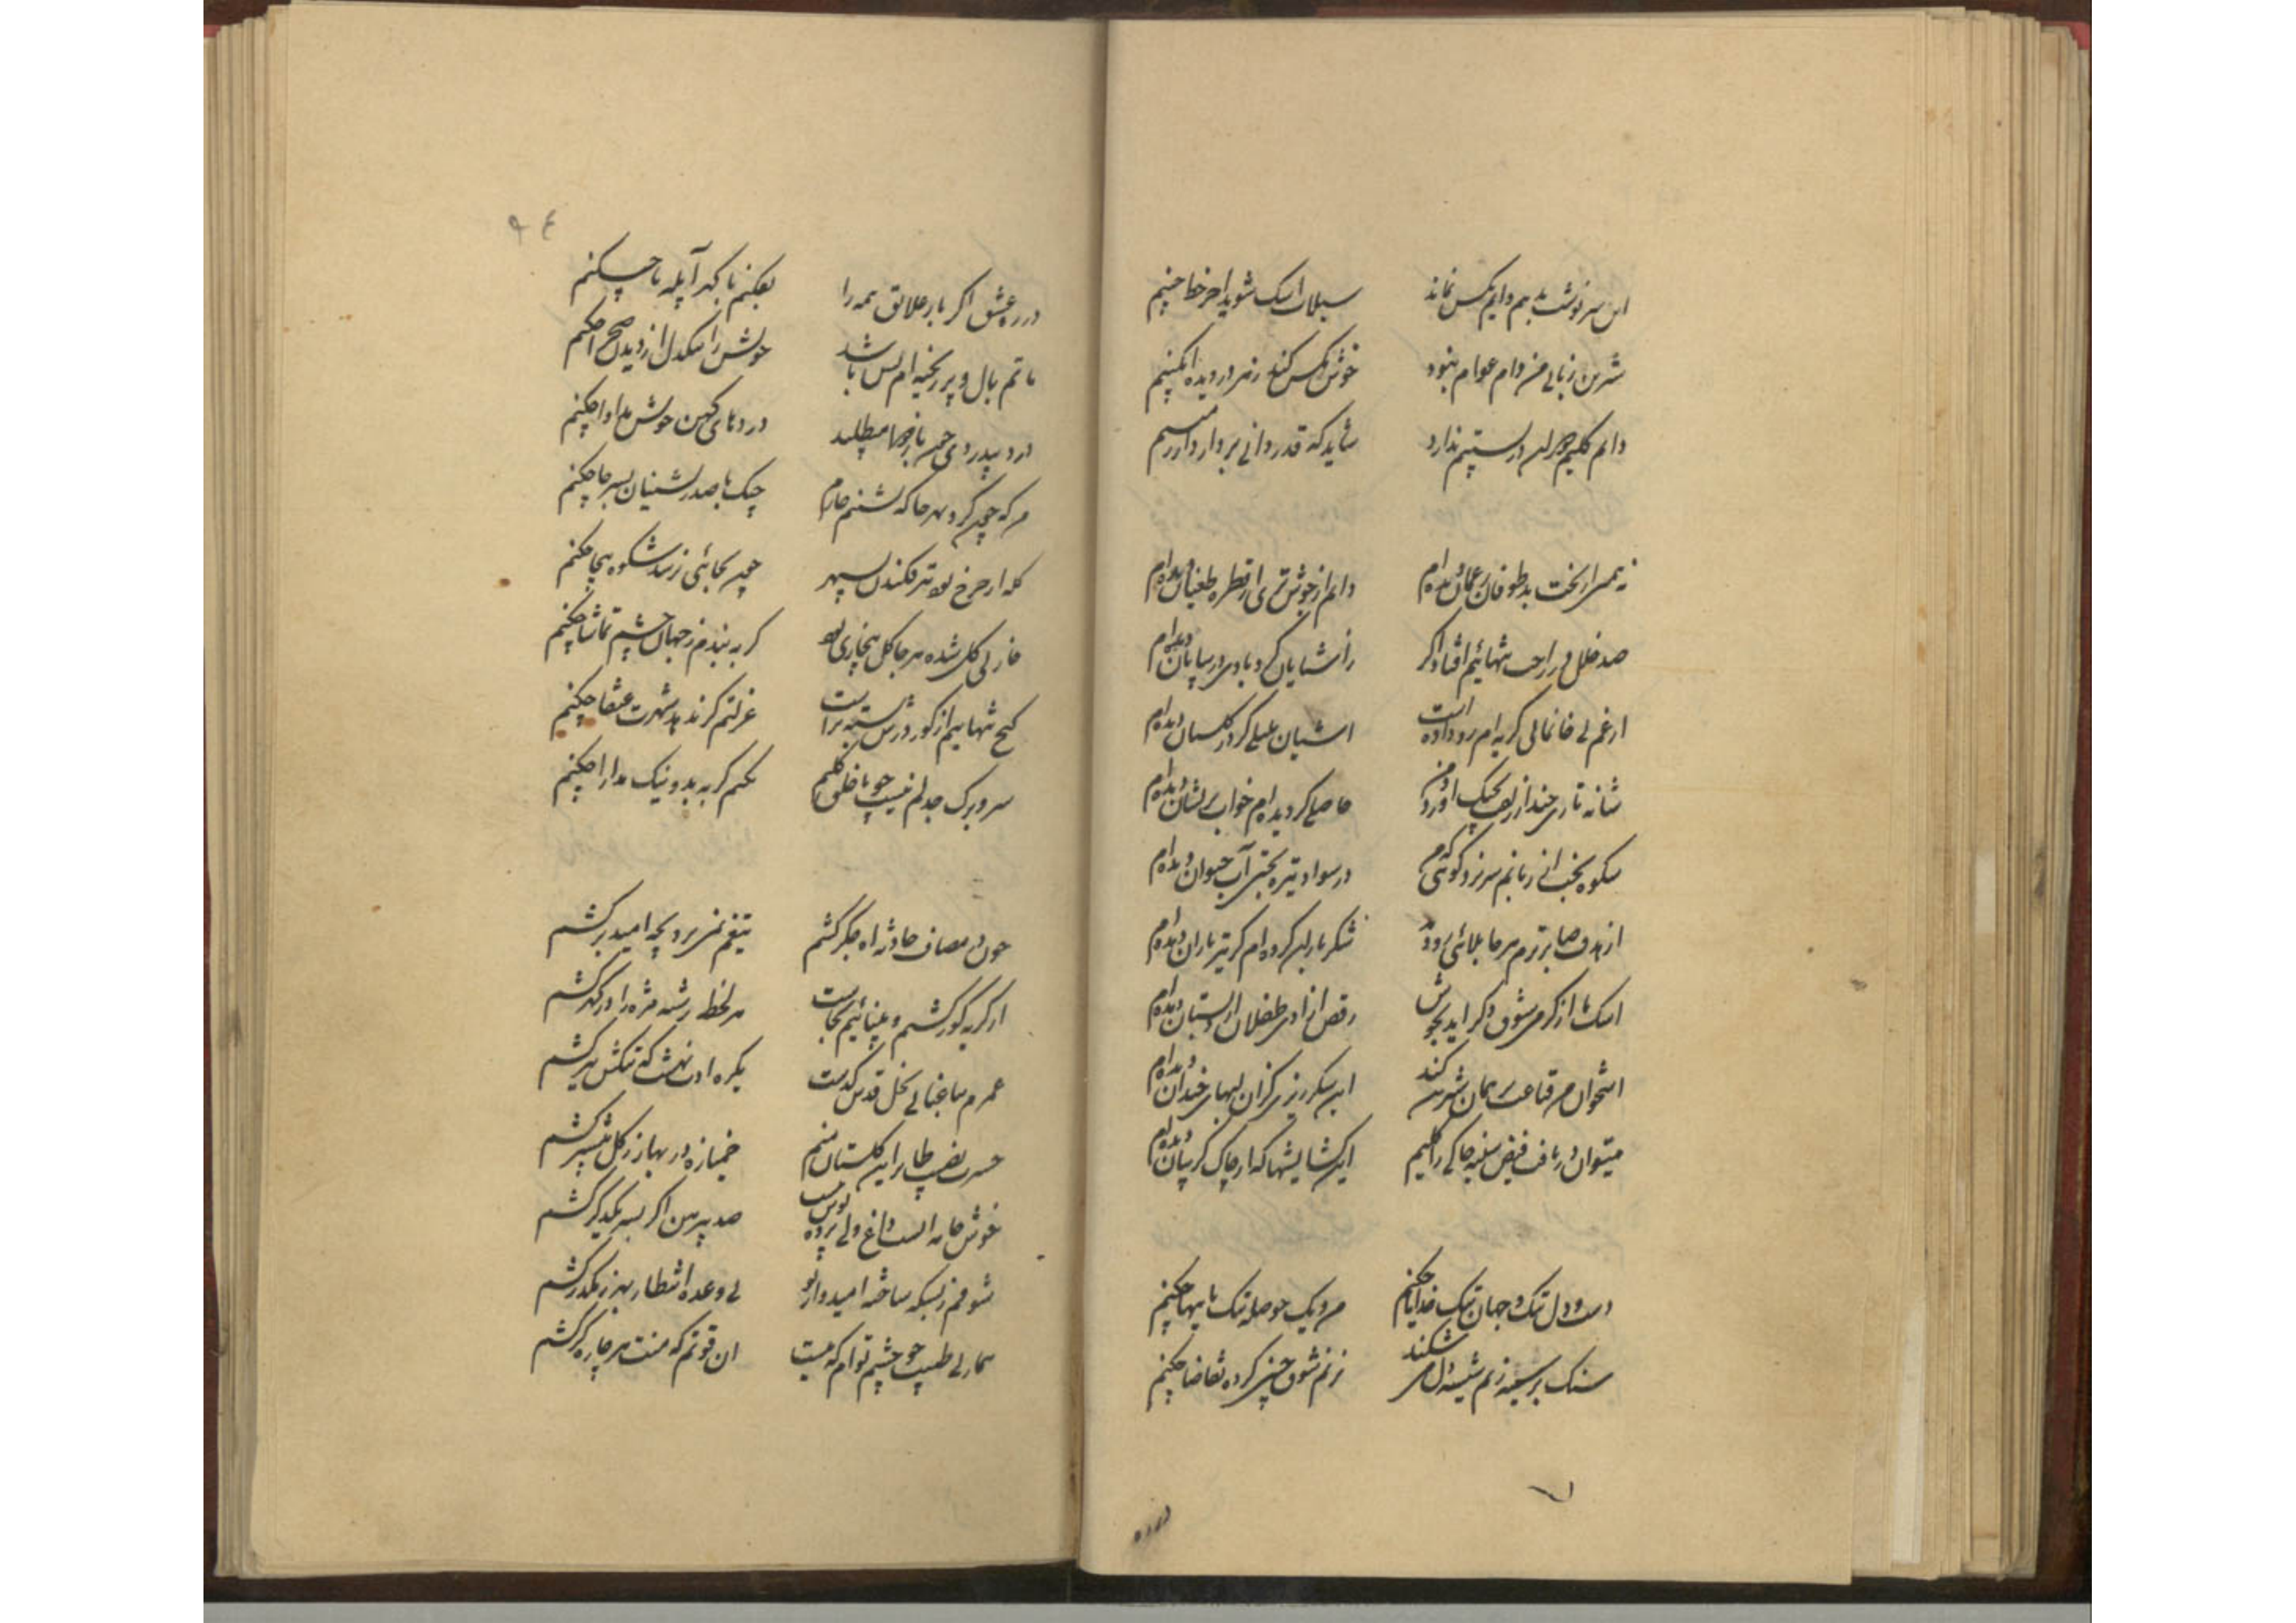 این سرنوشت بد هم دایم بکس نماند سیلاب اشک شوید آخر خط جبینم
شیرین زبانی من دام عوام نبود خوش مکس کند زنبور دیده انگبینم
دانم کلیم جوهر در ستیم ندارد شاید که قدردانی بردارد از زمینم
نه همین از بخت بد طوفان ز عمان دیده‌ام دایم از خوش تری از قطره طغیان دیده‌ام
صد خلل در راحت تنهائیم افتاد اگر ز آشنایان گردبادی در بیابان دیده‌ام
از غم بی خانمانی گریه‌ام رو داده است آشیان بلبلی گر در گلستان دیده‌ام
شانه تاری چند از زلفت بچنگ آورد و من حاصلی گر دیده‌ام خواب پریشان دیده‌ام
شکوه بخت از زبانم سر نزد گوئی که من در سواد تیره بختی آب حیوان دیده‌ام
از هدف صابرترم هر جا بلائی رو دهد شکر یاران کرده‌ام گر تیرباران دیده‌ام
اشک ما از گرمی شوق دگر آید بجوش رقص آزادی طفلان از دبستان دیده‌ام
استخوان من قناعت همان شیرین کند این شکرریزی کزان لبهای خندان دیده‌ام
میتوان دریافت فیض سینه چاکی را کلیم این گشایشها که از چاک گریبان دیده‌ام
دست و دل تنگ و جهان تنگ خدایا چکنم من و یک حوصله تنگ باینها چکنم
سنگ بر سینه زنم شیشه دل می شکند نزنم شوق چنین کرده تقاضا چکنم
در ره
۹۴
در ره عشق اگر بار علایق همه را بفکنم با گهر آبله پا چکنم
ماتم بال و پر ریخته‌ام بس باشد خویش را سنگدل از دیدن صحرا چکنم
درد بیدردی من با مطلبید دردهای کهن خویش مداوا چکنم
من که چون گرد بهر جا که نشستم خارم جنگ با صدرنشینان بسر جا چکنم
گله از چرخ بود تیر فکندن بسپهر چون بجائی نرسد شکوه بیجا چکنم
خار بی گل شده هر جا گل بیخاری بود گر نبندم ز جهان چشم تماشا چکنم
کنج تنهائیم از گور درش بسته تر است عزلتم گر ندهد شهرت عنقا چکنم
سر و برگ جدلم نیست چو با خلق کلیم نکنم گر به بد و نیک مدارا چکنم
چون در مصاف حادثه آه جگر کشم تیغم نمی برد چه امید بر کشم
از گریه کور گشتم و بینائیم بجاست هر لحظه رشته مژه را در گهر کشم
عمرم بباغبانی نخل قد گذشت یکره آن نهشت که تنگش ببر کشم
حسرت نصیب طایر این گلستان منم خمیازه در بهار ز گل بیشتر کشم
خوش جامه ایست داغ ولی پرده پوش نیست صد پیرهن اگر بسر یکدگر کشم
شوقم ز بسکه ساخته امیدوار تو بی وعده انتظار بهر رهگذر کشم
بیمار بی طبیب چو چشم توام که نیست آن قوتم که منت هر چاره‌گر کشم